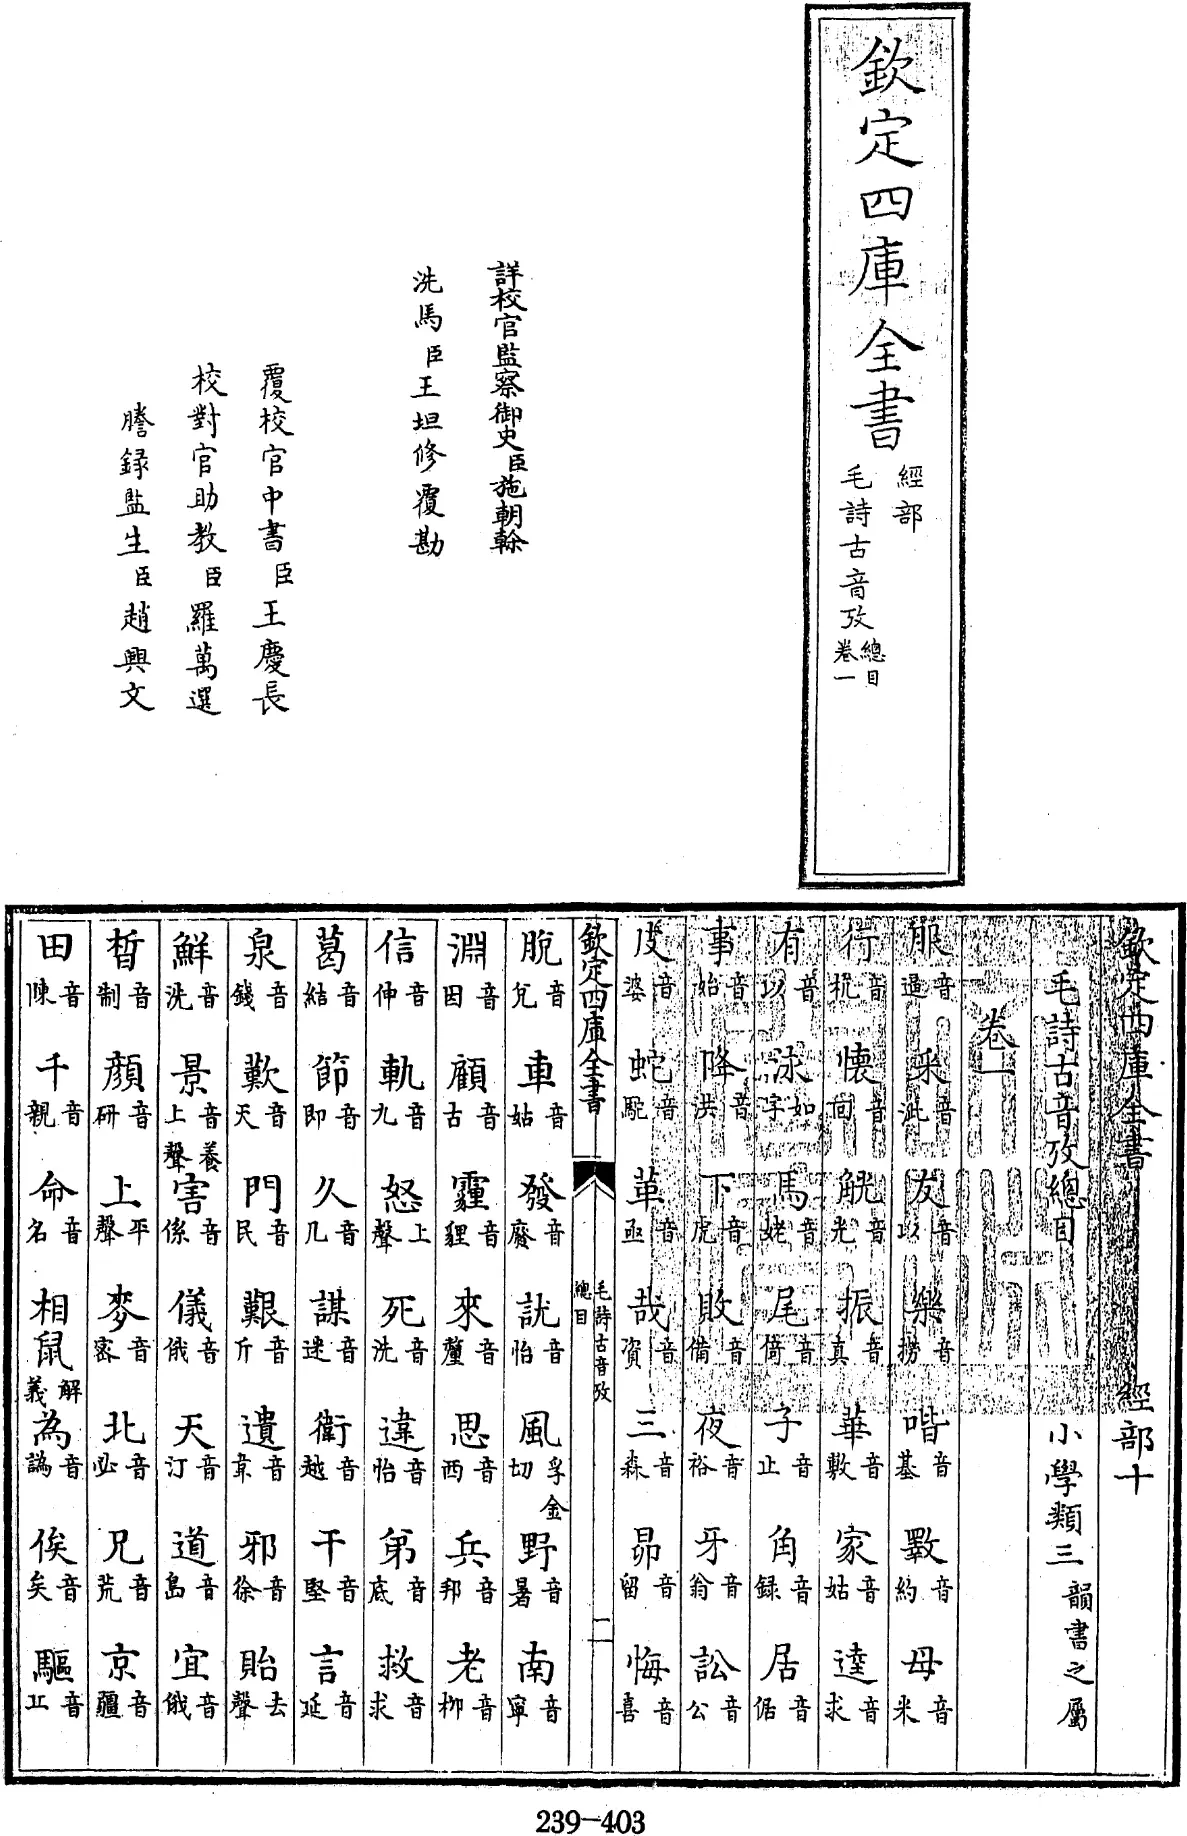 欽定四庫全書
經部
毛詩古音攷
總目
卷一
詳校官監察御史臣施朝榦
洗馬臣王坦修覆勘
覆校官中書臣王慶長
校對官助教臣羅萬選
謄録監生臣趙興文
欽定四庫全書 經部十
毛詩古音攷總目 小學類三韻書之屬
卷一
服音逼 采音泚 友音以 樂音撈 喈音基 斁音約 母音米
行音杭 懷音回 觥音光 振音真 華音敷 家音姑 逵音求
有音以 泳如字 馬音姥 尾音倚 子音止 角音録 居音倨
事音始 降音洪 下音虎 敗音備 夜音裕 牙音翁 訟音公
皮音婆 蛇音駝 革音亟 哉音資 三音森 昴音留 悔音喜
欽定四庫全書
毛詩古音攷
總目
一
脫音兊 車音姑 發音廢 訧音怡 風孚金切 野音暑 南音寧
淵音因 顧音古 霾音貍 來音釐 思音西 兵音邦 老音柳
信音伸 軌音九 怒上聲 死音洗 違音怡 弟音底 救音求
葛音結 節音即 久音几 謀音迷 衛音越 干音堅 言音延
泉音錢 歎音天 門音民 艱音斤 遺音韋 邪音徐 貽去聲
鮮音洗 景音養上聲 害音係 儀音俄 天音汀 道音島 宜音俄
晳音制 顏音研 上平聲 麥音密 北音必 兄音荒 京音疆
田音陳 千音親 命音名 相鼠解義 為音譌 俟音矣 驅音丘
239-403